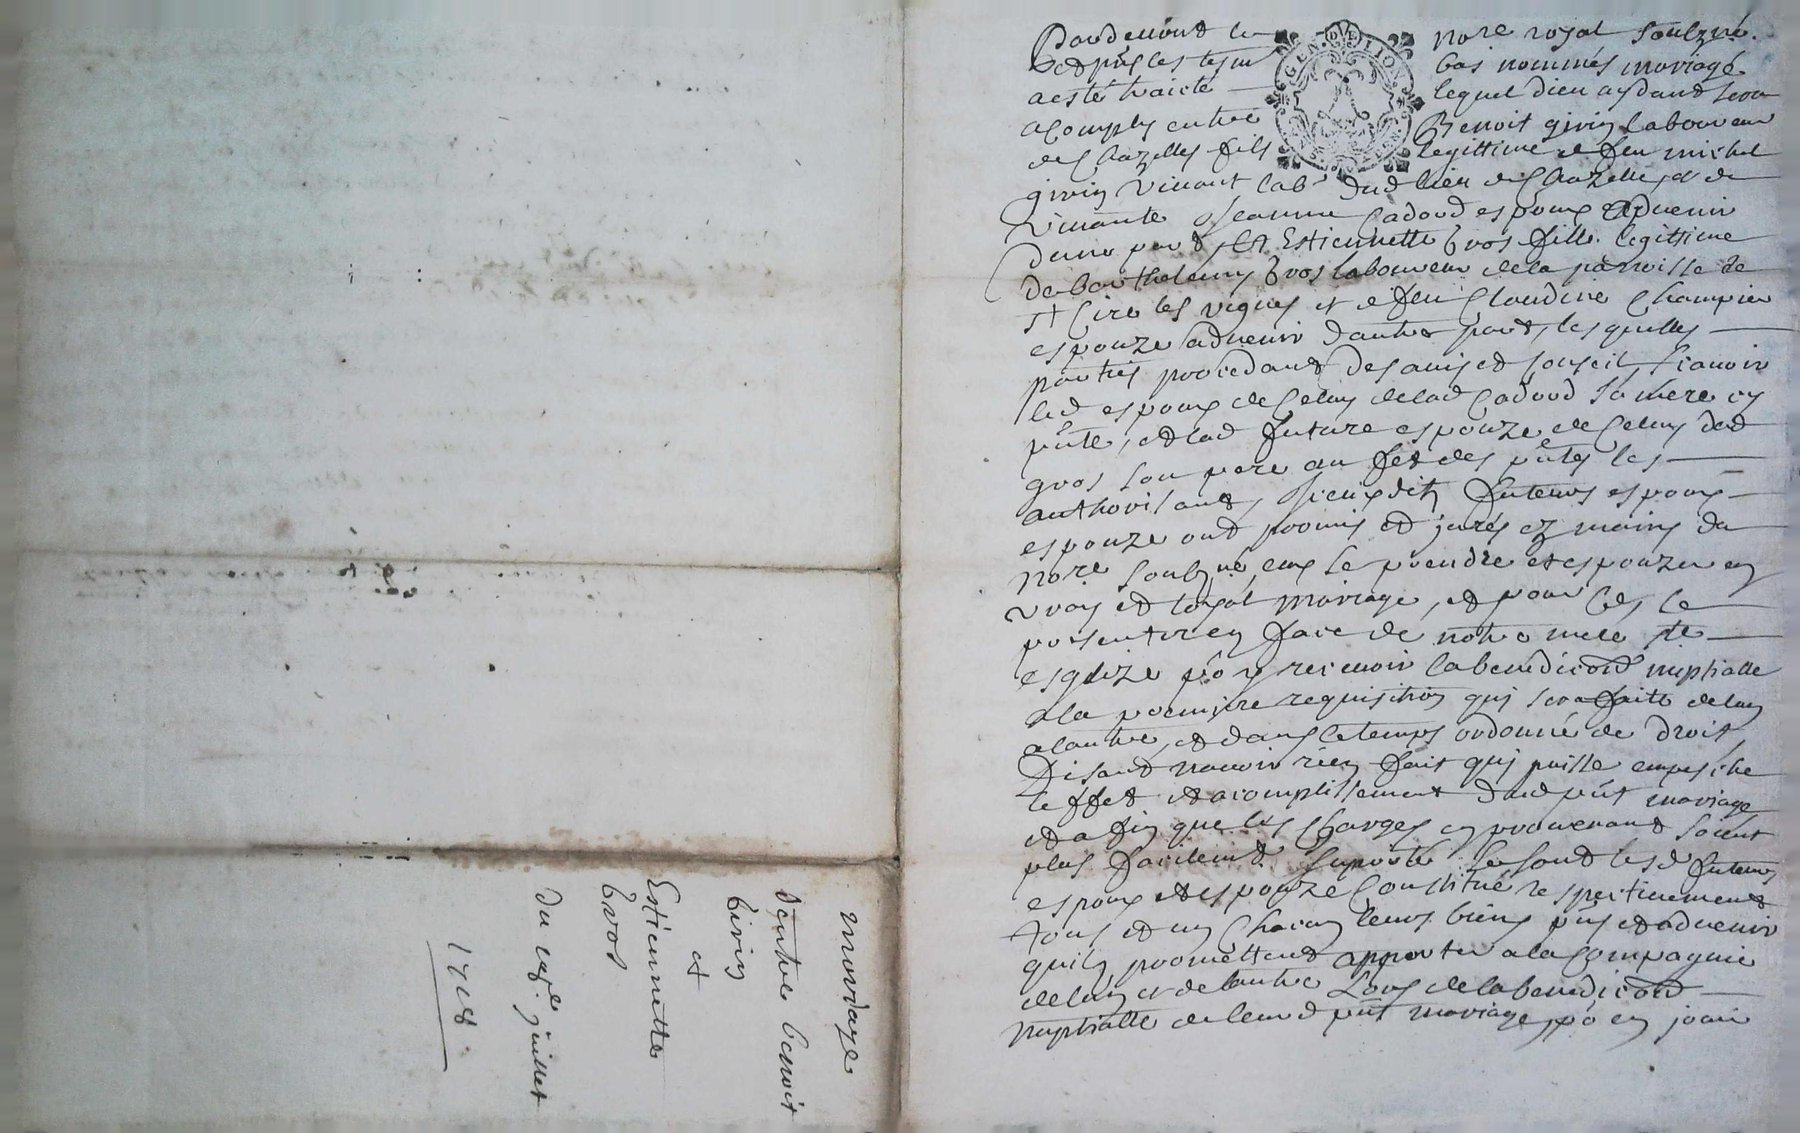 Pardevant le nore royal soubzné.
et pnts les tesm bas nommés mariage
a esté traicté lequel dieu aydant sera
acomply entre Benoit girin laboureur
de Chazelles fils legittime de feu michel
girin vivant labr dud lieu de Chazelles et de
vivante Jeanne Cadoud espoux advenir
dune part, Et Estiennette gros fille legittime
de barthelemy gros laboureur de la parroisse de
st Cire les vignes et de feue Claudine Champier
espouze advenir dautre part, lesquelles
parties procedant de s avis et conseil scavoir
led espoux de celuy de lad Cadoud sa mere icy
pnte, et lad future espouze de celuy dud
gros son pere au fet des pntes les
authorisant, Iceux dits futeurs espoux
espouze ont promis et jurés ez mains du
nore soubzné, eux se prendre et espouzer en
vray et loyal mariage, et pour ces se
presenter en face de notre mere ste
esglize po y recevoir la benediction nuptialle
a la premiere requisition quy sera faite de luy
a lautre, et dans le temps ordonné de droit
Disant navoir rien fait quy puisse empesche
leffet et acomplissement dud pnt mariage
et afin que les charges en provenant soient
plus facilemt suporté se sont lesd futeurs
espoux et espouze Constitué respectivement
tous et un chacun leurs biens pnts et advenir
quils promettent apporter a la Compagnie
de luy et de lautre Lors de la benediction
nuptialle de leurd pnt mariage, po en jouir
mariage
dentre benoit
Girin
et
Estiennette
Gros
Du juillet
1718